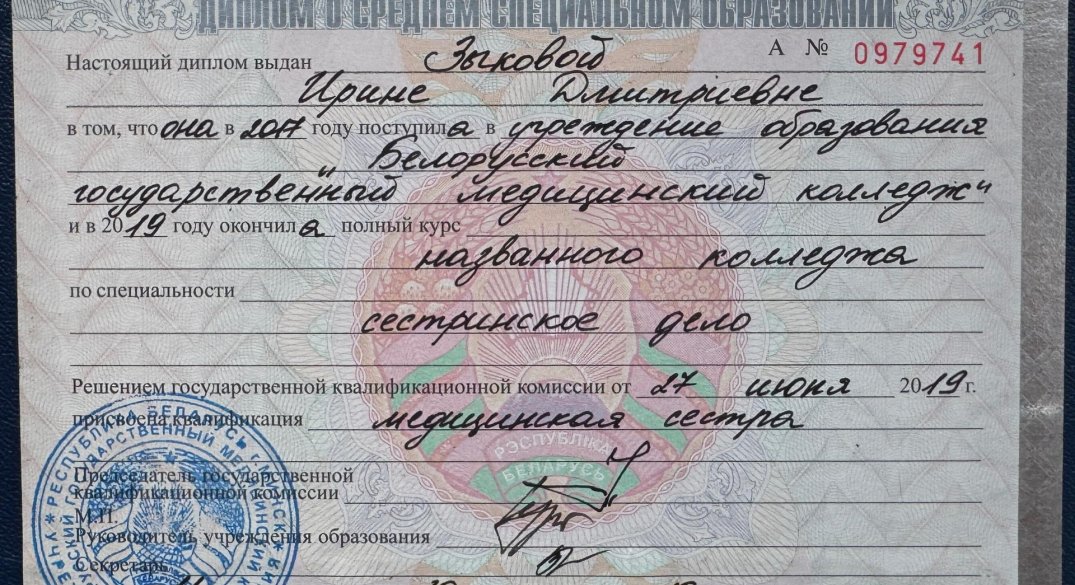 ДИПЛОМ О СРЕДНЕМ СПЕЦИАЛЬНОМ ОБРАЗОВАНИИ
А № 0979741
Настоящий диплом выдан Зыковой
Ирине Дмитриевне
в том, что она в 2017 году поступила в учреждение образования
„Белорусский
государственный медицинский колледж“
и в 2019 году окончила полный курс
названного колледжа
по специальности
сестринское дело
Решением государственной квалификационной комиссии от 27 июня 2019 г.
присвоена квалификация медицинская сестра
РЭСПУБЛІКА
БЕЛАРУСЬ
Председатель государственной
квалификационной комиссии
М.П.
Руководитель учреждения образования
Секретарь
РЕСПУБЛИКА БЕЛАРУСЬ Г.МИНСК
ГОСУДАРСТВЕННЫЙ МЕДИЦИНСКИЙ